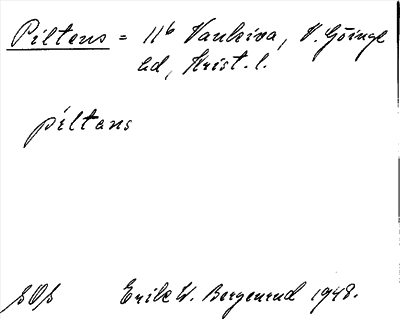 Piltens = 11b Vankiva, V. Göinge
hd, Krist. l.
piltans
SOS Erik W. Bergenrud 1948.